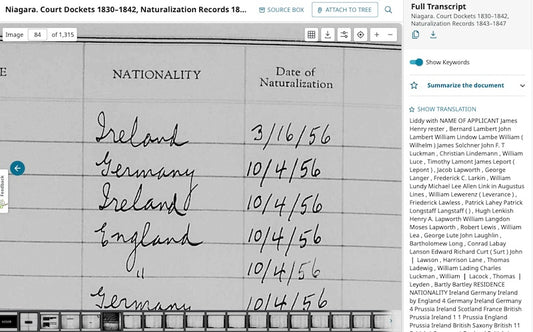 Niagara. Court Dockets 1830–1842, Naturalization Records 18...
SOURCE BOX
ATTACH TO TREE
Image 84 of 1,315
E
NATIONALITY
Date of
Naturalization
Ireland 3/16/56
Germany 10/4/56
Ireland 10/4/56
England 10/4/56
" 10/4/56
Germany 10/4/56
Feedback
Full Transcript
Niagara. Court Dockets 1830–1842,
Naturalization Records 1843–1847
Show Keywords
Summarize the document
SHOW TRANSLATION
Liddy with NAME OF APPLICANT James
Henry rester , Bernard Lambert John
Lambert William Lindow Lambe William (
Wilhelm ) James Solchner John F. T
Luckman , Christian Lindemann , William
Luce , Timothy Lamont James Leport (
Lepont ) , Jacob Lapworth , George
Langer , Frederick C. Larkin , William
Lundy Michael Lee Allen Link in Augustus
Lines , William Lewerenz ( Leverance ) ,
Friederick Lawless , Patrick Lahey Patrick
Longstaff Langstaff ( ) , Hugh Lenkish
Henry A. Lapworth William Langdon
Moses Lapworth , Robert Lewis , William
Lea , George Lute John Laughlin ,
Bartholomew Long , Conrad Labay
Lanson Edward Richard Curt ( Surt ) John
| Lawson , Harrison Lane , Thomas
Ladewig , William Lading Charles
Luckman , William | Lacock , Thomas |
Leyden , Bartly Bartley RESIDENCE
NATIONALITY Ireland Germany Ireland
by England 4 Germany Ireland Germany
4 Prussia Ireland Scotland France British
Prussia Ireland 1 1 Prussia England
Prussia Ireland British Saxony British 11